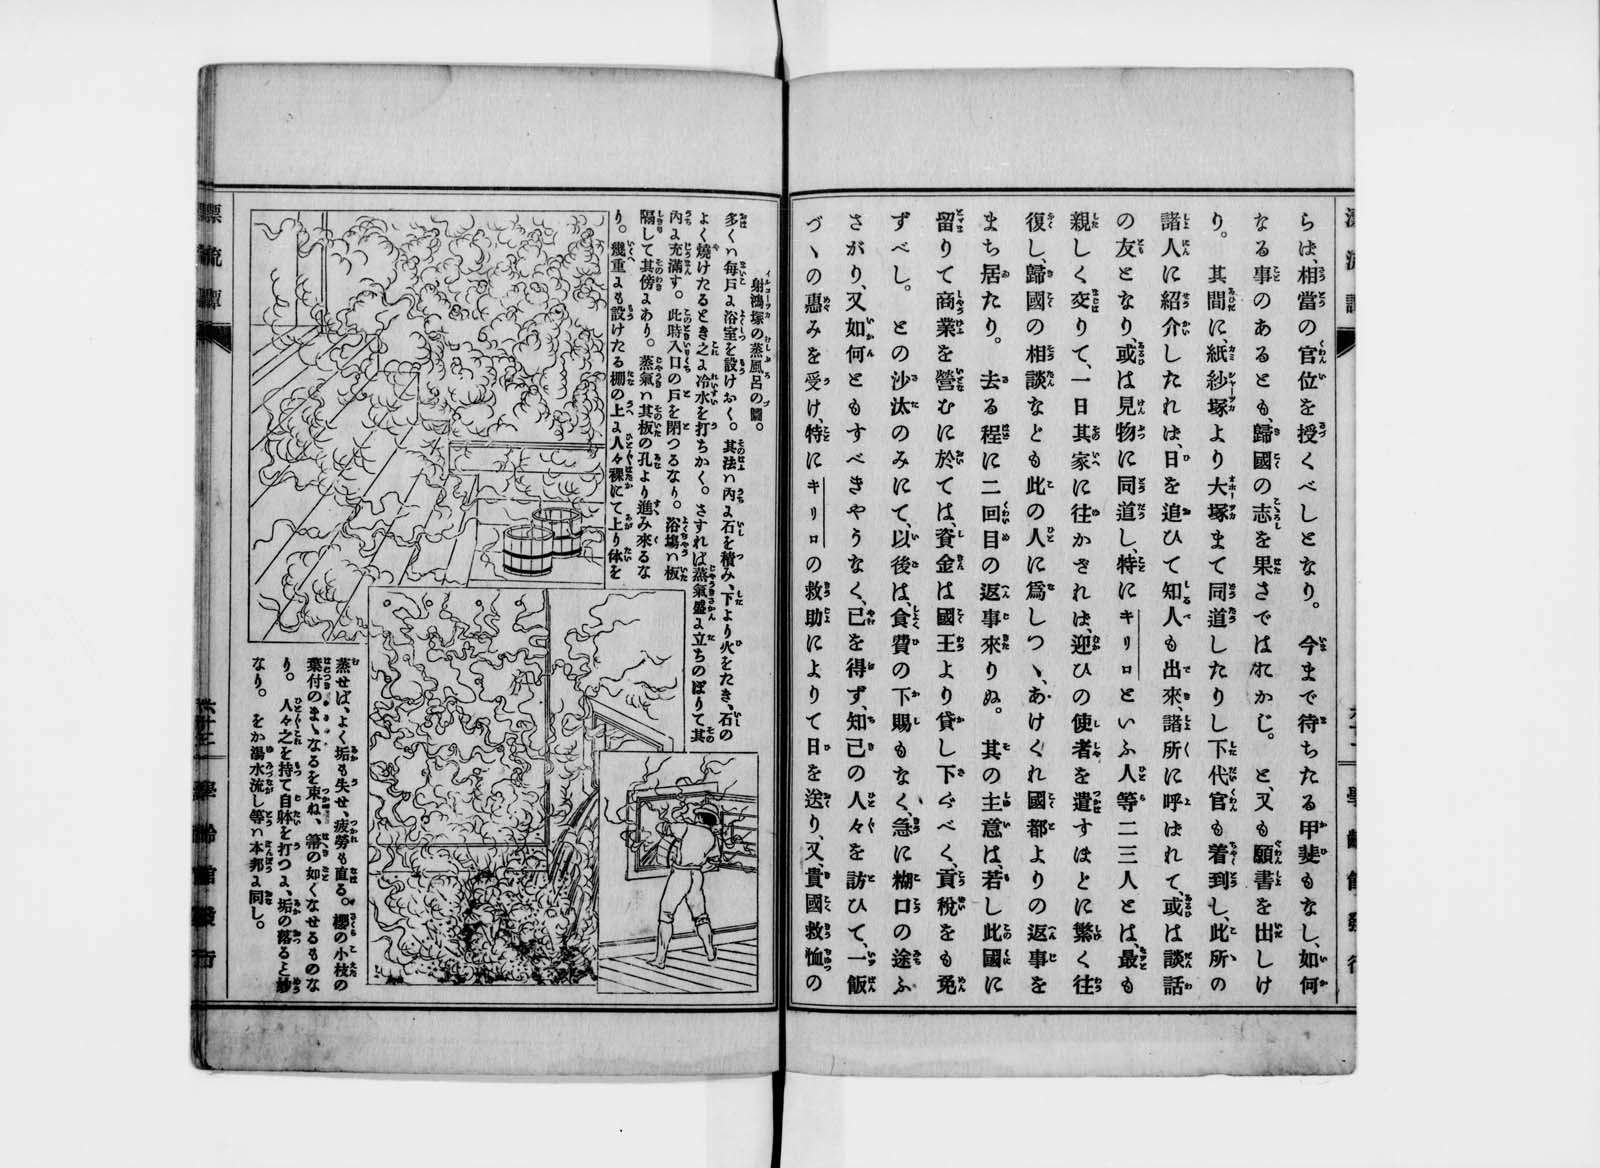 らは、相當の官位を授くべしとなり。今まで待ちたる甲斐もなし、如何
なる事のあるとも、歸國の志を果さではおかじ。と、又も願書を出しけ
り。其間に、紙紗塚より大塚まて同道したりし下代官も着到し、此所の
諸人に紹介したれは、日を追ひて知人も出來、諸所に呼はれて、或は談話
の友となり、或は見物に同道し、特にキリロといふ人等二三人とは、最も
親しく交りて、一日其家に往かざれは、迎ひの使者を遣すほとに繁く往
復し、歸國の相談なども此の人に爲しつゝ、あけくれ國都よりの返事を
まち居たり。去る程に二回目の返事來りぬ。其の主意は、若し此國に
留りて商業を營むに於ては、資金は國王より貸し下ぐべく、貢税をも免
ずべし。との沙汰のみにて、以後は、食費の下賜もなく、急に糊口の途ふ
さがり、又如何ともすべきやうなく、已を得ず、知己の人々を訪ひて、一飯
づゝの惠みを受け、特にキリロの救助によりて日を送り、又、貴國救恤の
漂流譚
學齡館發行
射鴻塚の蒸風呂の圖。
多くハ毎戸ﾆ浴室を設けおく。其法ハ內ﾆ石を積み、下より火をたき、石の
よく燒けたるとき之ﾆ冷水を打ちかく。さすれば蒸氣盛ﾆ立ちのぼりて其
內ﾆ充滿す。此時入口の戸を閉つるなり。浴塲ハ板
隔して其傍ﾆあり。蒸氣ハ其板の孔より進み來るな
り。幾重ﾆも設けたる棚の上ﾆ人々裸にて上り体を
蒸せば、よく垢も失せ、疲勞も直る。櫻の小枝の
葉付のまゝなるを束ね、箒の如くなせるものな
り。人々之を持て自躰を打つﾆ、垢の落ると妙
なり。をか湯水流し等ハ本邦ﾆ同し。
漂流譚
六十三
學齡館發行